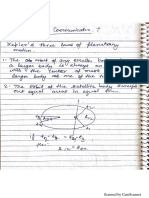 Communication :-
Kepler's three laws of planetary
motion.
1:- The orbit of any smaller body about
a larger body is always an
with the center of mass of the
larger body as one of the
2:- The orbit of the satellite body sweeps
out equal areas in equal time.
if
Scanned by CamScanner